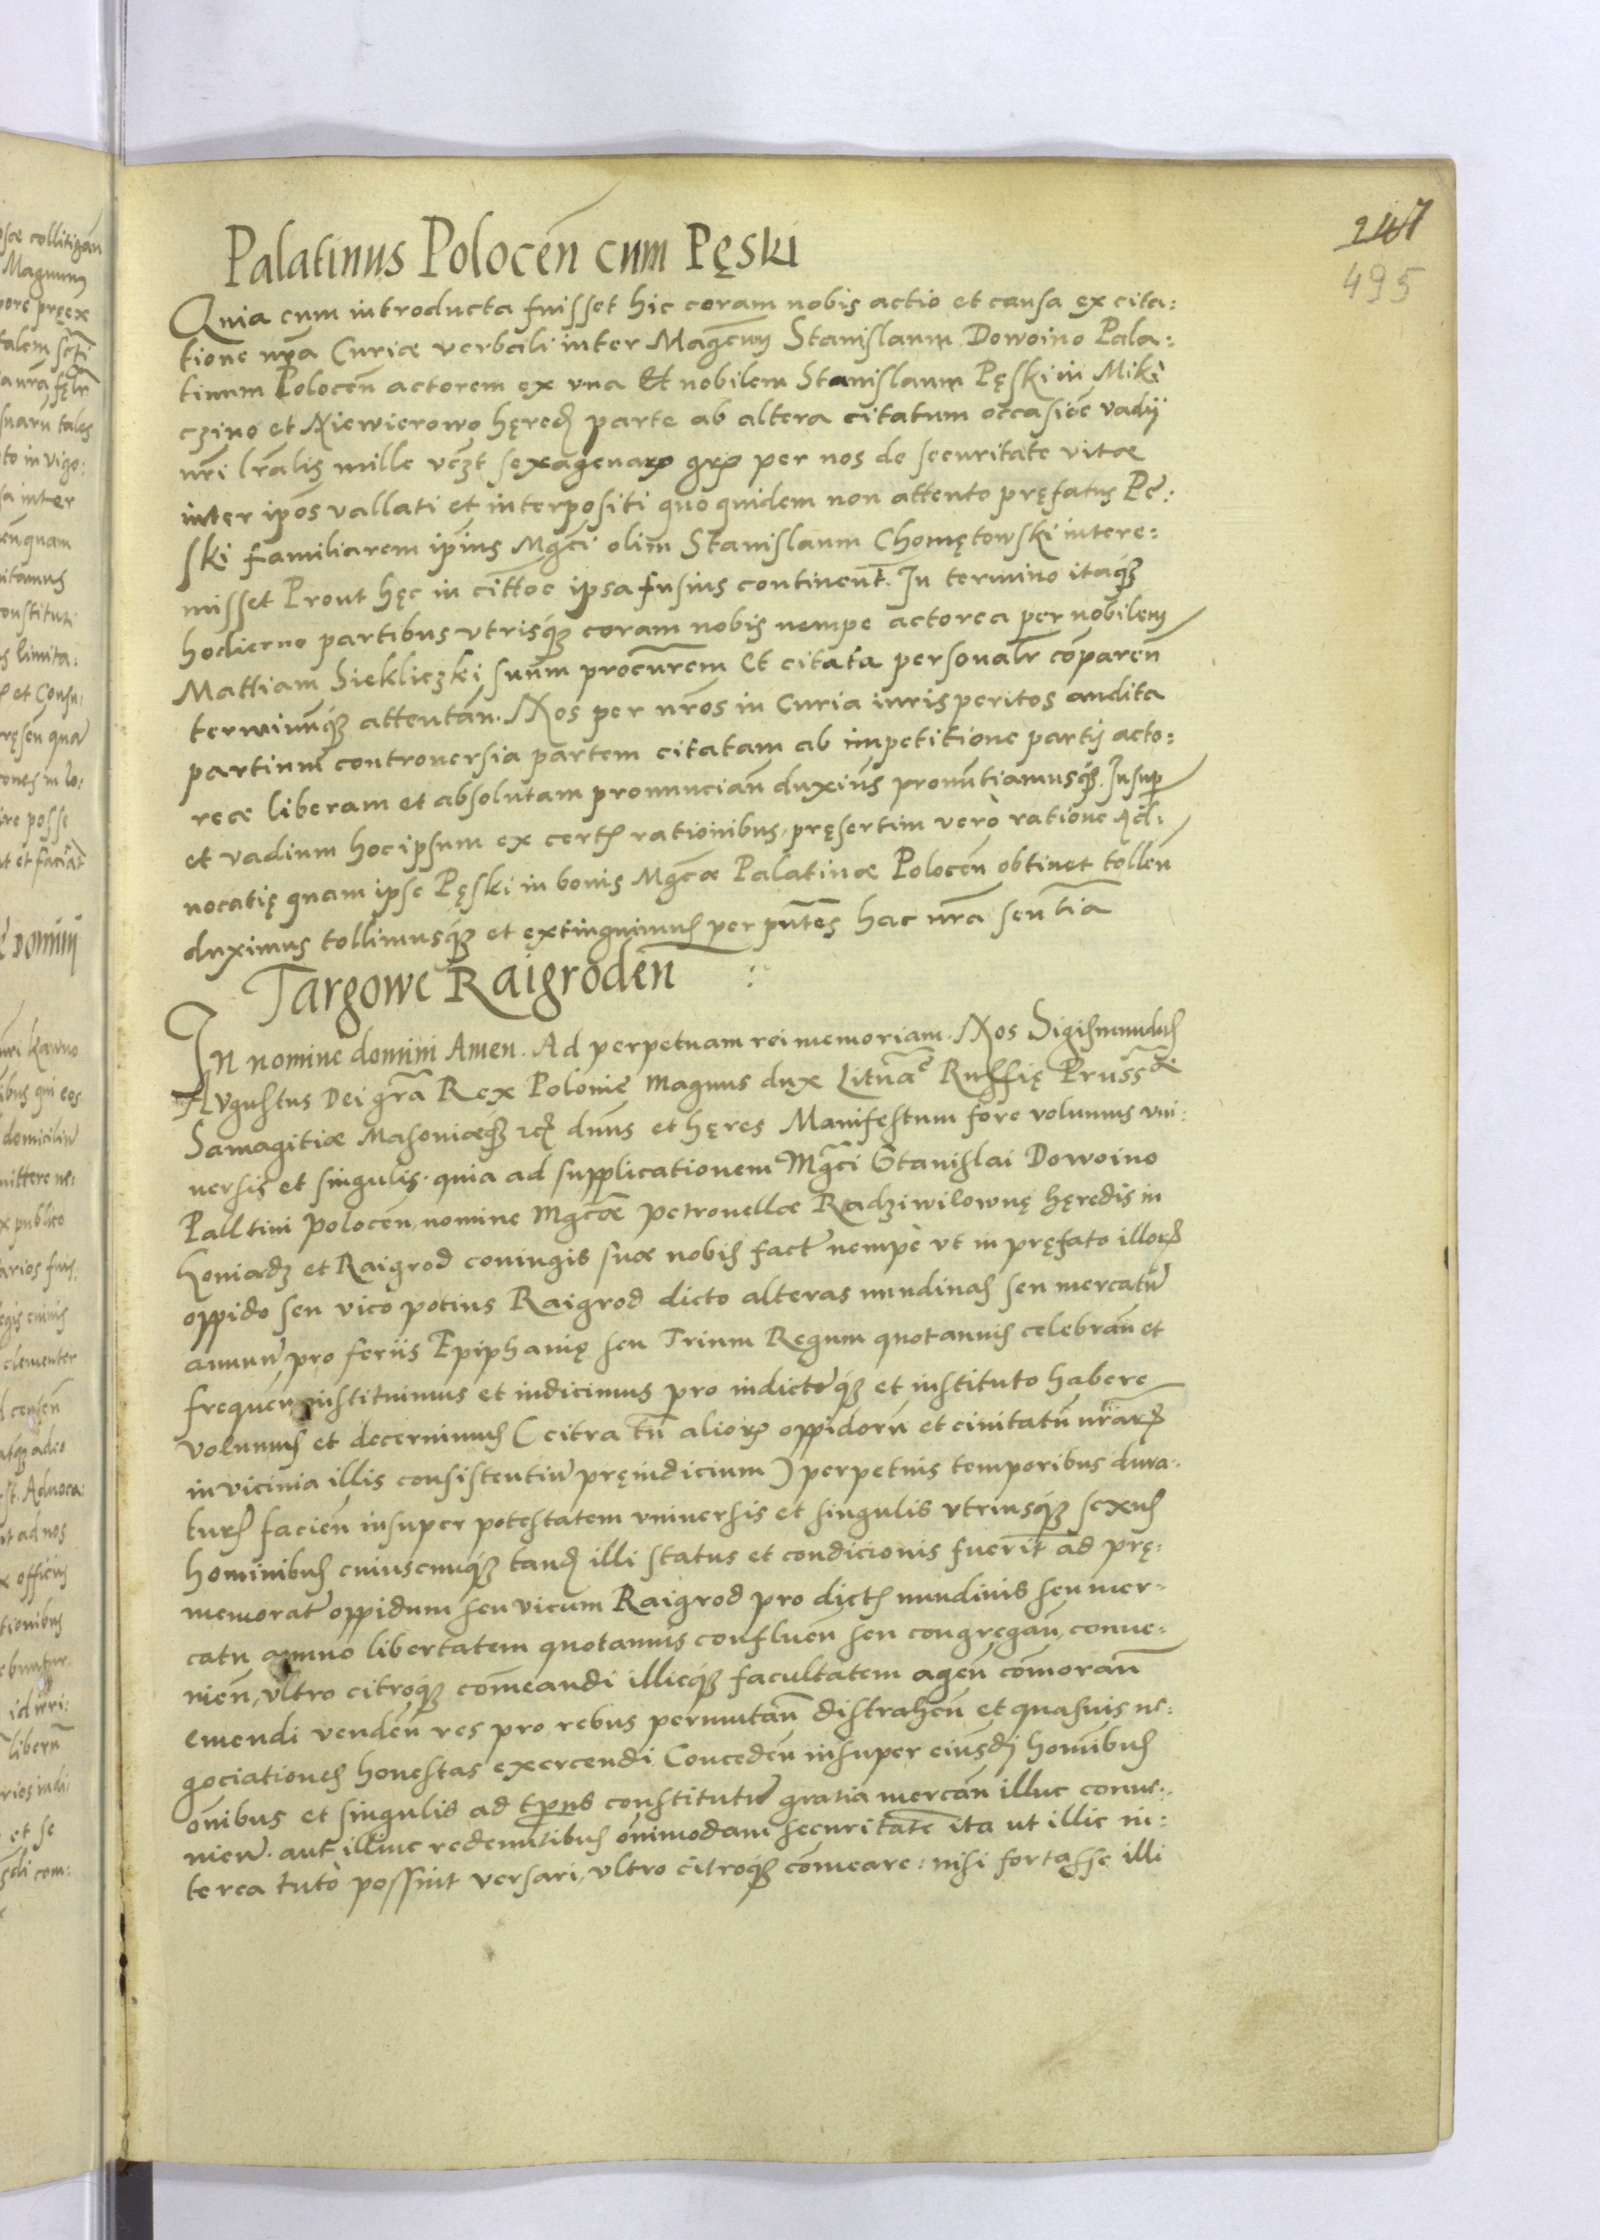 247
495
Palatinus Polocen̄ cum Pęski
Quia cum introducta fuisset hic coram nobis actio et causa ex cita:
tione nr̄a Curiæ verbali inter Magcum Stanislaum Dowoino Pala:
tinum Polocen̄ actorem ex vna Et nobilem Stanislaum Pęski in Miki
czino et Niewierowo hęred parte ab altera citatum occasiōe vadÿ
nr̄i lr̄alis mille vczt sexagenarꝝ grꝝ per nos de securitate vitæ
inter ipōs vallati et interpositi quo quidem non attento pręfatus Pę:
ski familiarem ipīus Mgci olim Stanislaum Chomętowski intere:
misset Prout hęc in citt̄oe ipsa fusius continent̄. In termino itaqꝫ
hodierno partibus vtrisqꝫ coram nobis nempe actorea per nobilem
Mattiam Siekliczki suum procur̄em Et citata personalr̄ cōparen̄
terminūqꝫ attentan̄. Nos per nr̄os in Curia iurisperitos audita
partium controuersia partem citatam ab impetitione partis acto:
reæ liberam et absolutam pronuncian̄ duxim̄s pronūtiamusqꝫ. Insup
et vadium hoc ipsum ex certis rationibus, pręsertim verò ratione Ad:
uocatię quam ipse Pęski in bonis Mgcæ Palatinæ Polocen̄ obtinet tollen̄
duximus tollimusqꝫ et extinguimus per pn̄tes hac nr̄a sen̄tia
Targowe Raigroden̄
In nomine domini Amen. Ad perpetuam rei memoriam. Nos Sigismundus
Augustus Dei gr̄a Rex Polonię Magnus dux Litua͞e Russię Pruss͞iæ
Samagitiæ Masoniæqꝫ etc dn̄us et hęres Manifestum fore volumus vni:
uersis et singulis. quia ad supplicationem Mgci Stanislai Dowoino
Palltini Polocen, nomine Mgcæ Petronellæ Radziwilownę hęredis in
Koniadz et Raigrod coniugis suæ nobis fact̄ nempe vt in pręfato illorꝝ
oppido seu vico potius Raigrod dicto alteras nundinas seu mercatū
annuū, pro feriis Epiphanię seu Trium Regum quotannis celebran̄ et
frequen̄ instituimus et indicimus pro indictoqꝫ et instituto habere
volumus et decernimus (citra tn̄ aliorꝝ oppidorū et ciuitatū nr̄arꝝ
in vicinia illis consistentiū pręiudicium) perpetuis temporibus dura:
turꝭ facien̄ insuper potestatem vniuersis et singulis vtriusqꝫ sexus
hominibus cuiuscuqꝫ tand illi status et condicionis fuerīt ad prę:
memorat̄ oppidum seu vicum Raigrod pro dictis nundinis seu mer:
catu annuo libertatem quotannis confluen̄ seu congregan̄, conue:
nien̄, vltro citroqꝫ com̄eandi illicqꝫ facultatem agen̄ com̄oran̄
emendi venden̄ res pro rebus permutan̄ distrahen̄ et quasuis ne:
gociationes honestas exercendi Conceden̄ insuper eiusdē homībus
om̄ibus et singulis ad tp̄us constitutū gratia mercan̄ illuc conue:
nien̄. aut illinc redeuntibus om̄imodam securitatē ita ut illic in:
terea tutò possint versari, vltro citroqꝫ com̄eare: nisi fortasse illi